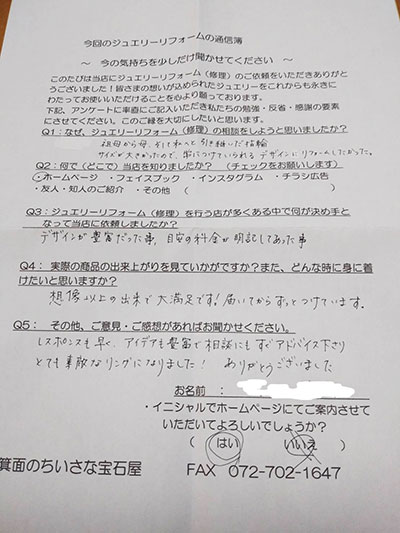 今回のジュエリーリフォームの通信簿
～ 今の気持ちを少しだけ聞かせてください ～
このたびは当店にジュエリーリフォーム（修理）のご依頼をいただきありがと
うございました！皆さまの想いが込められたジュエリーをこれからも永きに
わたってお使いいただけることを心より願っております。
下記、アンケートに率直にご記入いただき私たちの勉強・反省・感謝の要素
にさせてください。このご縁を大切にしたいと思います。
Q1：なぜ、ジュエリーリフォーム（修理）の相談をしようと思いましたか？
祖母から母、そして私へと引き継いだ指輪
サイズが大きかったので、常につけていられるデザインにリフォームしたかった。
Q2：何で（どこで）当店を知りましたか？ （チェックをお願いします）
・ホームページ ・フェイスブック ・インスタグラム ・チラシ広告
・友人・知人のご紹介 ・その他（ ）
Q3：ジュエリーリフォーム（修理）を行う店が多くある中で何が決め手と
なって当店に依頼しましたか？
デザインが豊富だった事、目安の料金が明記してあった事
Q4： 実際の商品の出来上がりを見ていかがですか？また、どんな時に身に着
けたいと思いますか？
想像以上の出来で大満足です！届いてからずっとつけています。
Q5： その他、ご意見・ご感想があればお聞かせください。
レスポンスも早く、アイデアも豊富で相談にもすぐアドバイス下さり
とても素敵なリングになりました！ ありがとうございました
お名前：
・イニシャルでホームページにてご案内させて
いただいてよろしいでしょうか？
（ はい いいえ ）
箕面のちいさな宝石屋 FAX 072-702-1647